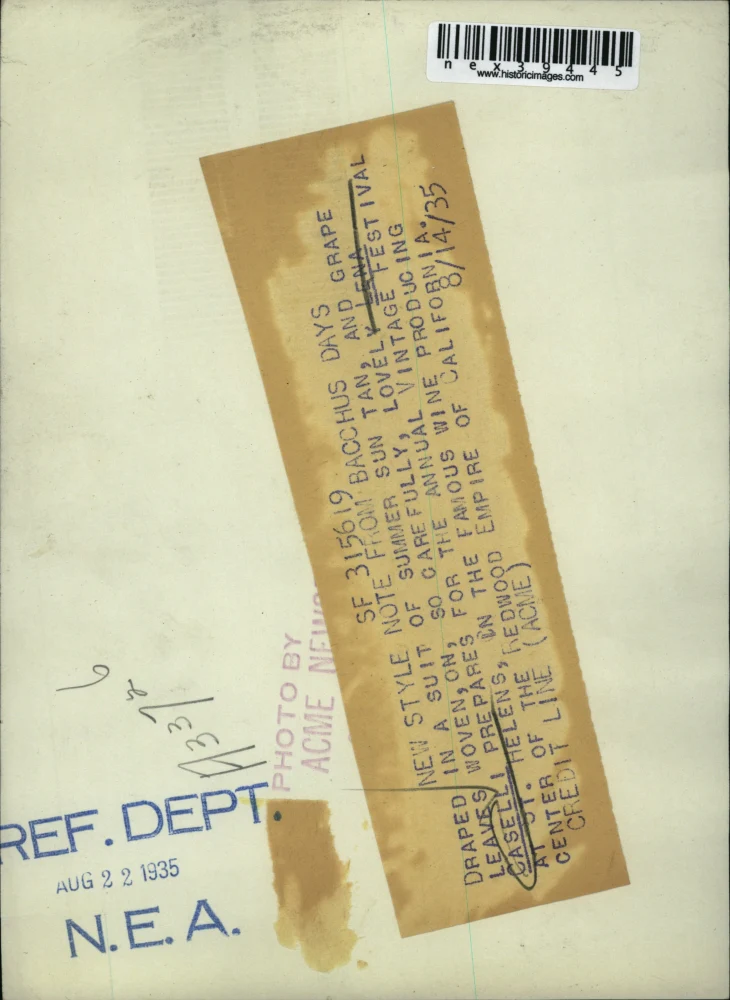 nex39445
www.historicimages.com
SF 315619
NEW STYLE NOTE FROM BACCHUS DAYS
DRAPED IN A SUIT OF SUMMER SUN TAN, AND GRAPE
LEAVES WOVEN, ON, SO CAREFULLY, LOVELY LENA
CASELLI PREPARES FOR THE ANNUAL VINTAGE FESTIVAL
AT ST. HELENS, IN THE FAMOUS WINE PRODUCING
CENTER OF THE REDWOOD EMPIRE OF CALIFORNIA.
CREDIT LINE (ACME) 8/14/35
PHOTO BY
ACME NEWS
6
REF. DEPT.
AUG 22 1935
N.E.A.